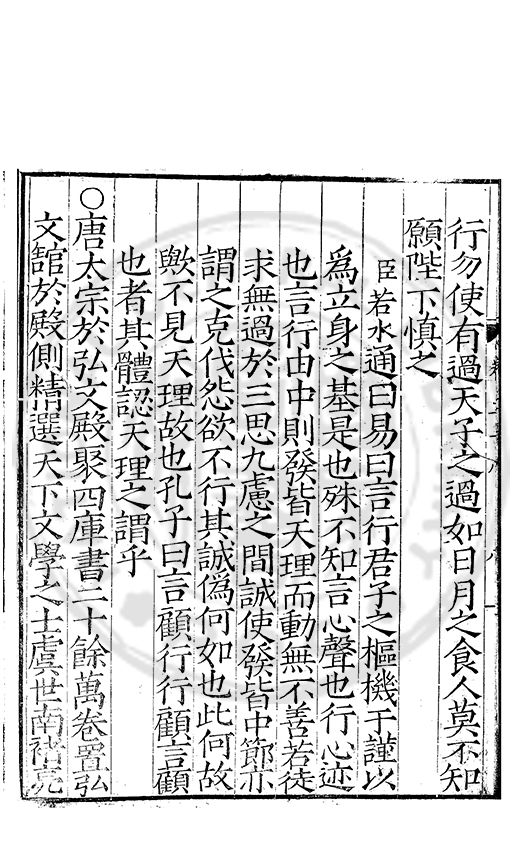 行勿使有過天子之過如日月之食人莫不知
願陛下慎之
臣若水通曰易曰言行君子之樞機于謹以
爲立身之基是也殊不知言心聲也行心迹
也言行由中則發皆天理而動無不善若徒
求無過於三思九慮之間誠使發皆中節亦
謂之克伐怨欲不行其誠僞何如也此何故
歟不見天理故也孔子曰言顧行行顧言顧
也者其體認天理之謂乎
○唐太宗於弘文殿聚四庫書二十餘萬卷置弘
文舘於殿側精選天下文學之士虞世南褚亮